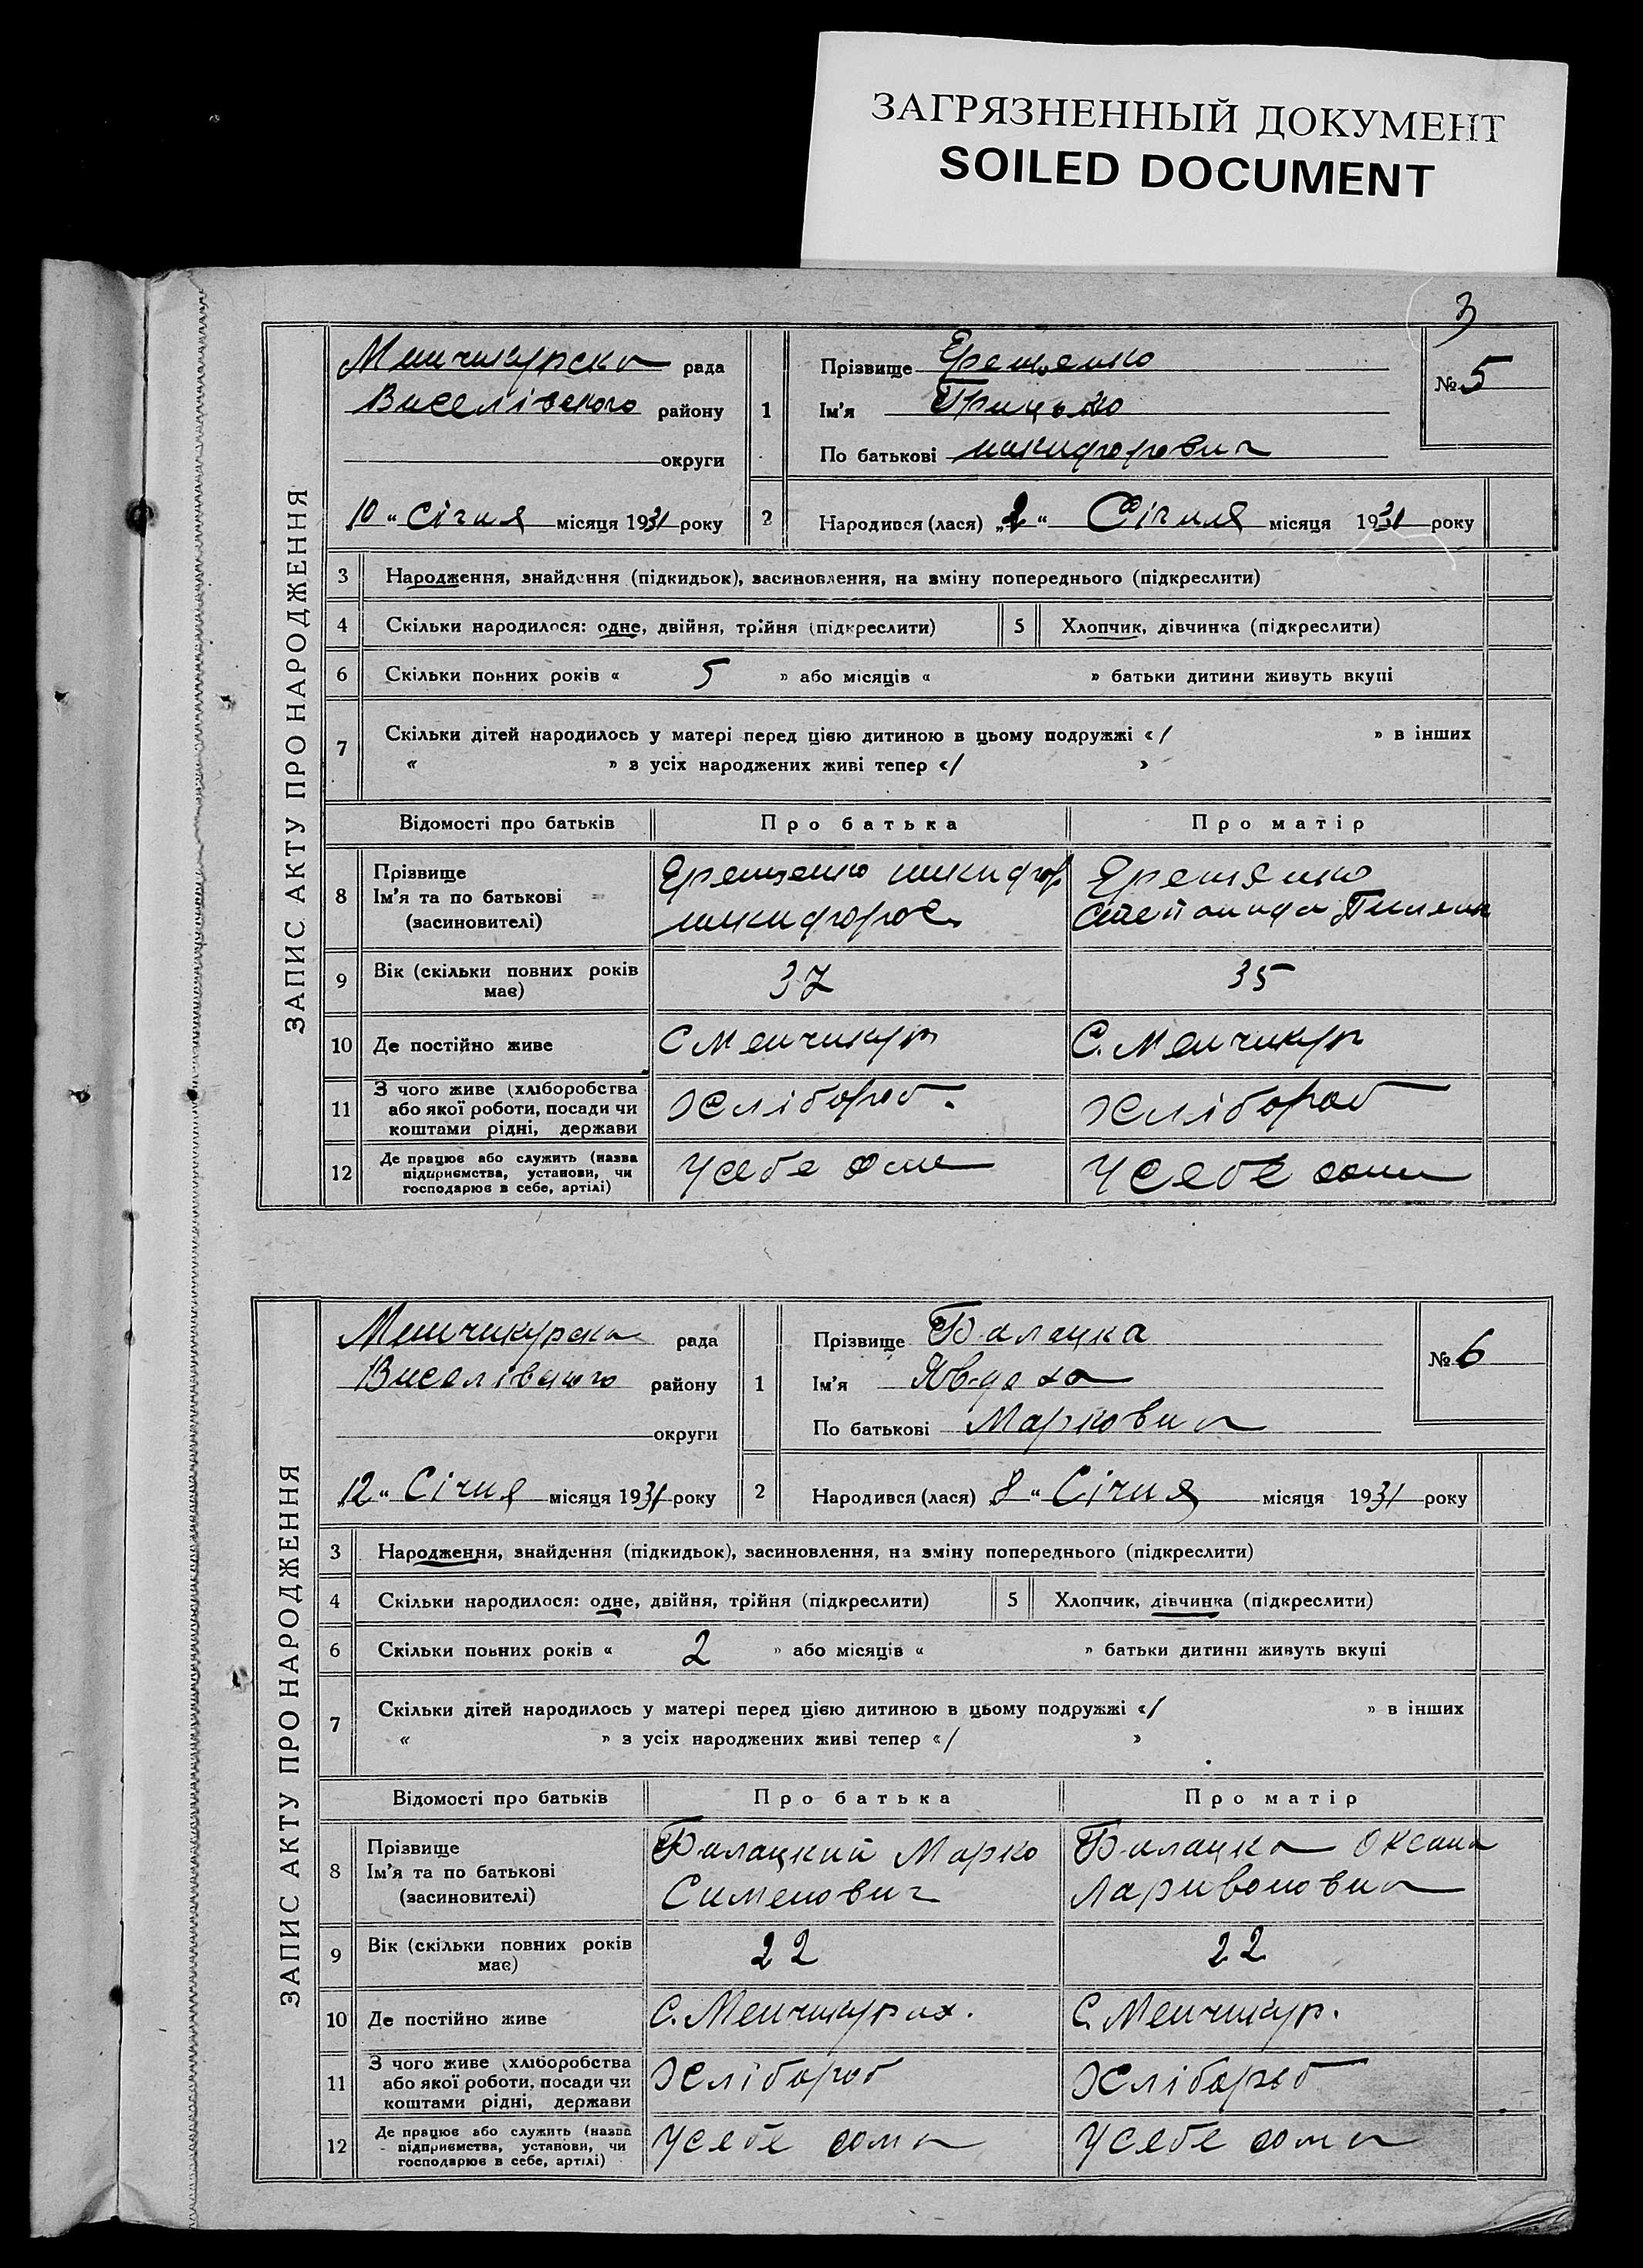 ЗАГРЯЗНЕННЫЙ ДОКУМЕНТ
SOILED DOCUMENT
3
ЗАПИС АКТУ ПРО НАРОДЖЕННЯ
Менчикурска рада
Виселівского району
округи
10 „ Січня місяця 1931 року
1
Прізвище Єрещенко
Ім'я Грицько
По батькові никифорович
№ 5
2
Народився (лася) „2" Січня місяця 1931 року
3 Народження, знайдення (підкидьок), засиновлення, на зміну попереднього (підкреслити)
4 Скільки народилося: одне, двійня, трійня (підкреслити) 5 Хлопчик, дівчинка (підкреслити)
6 Скільки повних років « 5 » або місяців « » батьки дитини живуть вкупі
7 Скільки дітей народилось у матері перед цією дитиною в цьому подружжі « / » в інших
« » з усіх народжених живі тепер « / »
Відомості про батьків Про батька Про матір
8 Прізвище
Ім'я та по батькові
(засиновителі)
Єрещенко никифор
никифоров
Єрещенко
Степанида
9 Вік (скільки повних років
має)
37 35
10 Де постійно живе С Менчикур С. Менчикур
11 З чого живе (хліборобства
або якої роботи, посади чи
коштами рідні, держави
Хлібороб. Хлібороб
12 Де працює або служить (назва
підприємства, установи, чи
господарює в себе, артілі)
У себе дома У себе дома
ЗАПИС АКТУ ПРО НАРОДЖЕННЯ
Менчикурска рада
Виселівского району
округи
„12" Січня місяця 1931 року
1
Прізвище Балацка
Ім'я Явдоха
По батькові Марковна
№ 6
2
Народився (лася) 8 " Січня місяця 1931 року
3 Народження, знайдення (підкидьок), засиновлення, на зміну попереднього (підкреслити)
4 Скільки народилося: одне, двійня, трійня (підкреслити) 5 Хлопчик, дівчинка (підкреслити)
6 Скільки повних років « 2 » або місяців « » батьки дитини живуть вкупі
7 Скільки дітей народилось у матері перед цією дитиною в цьому подружжі « / » в інших
« » з усіх народжених живі тепер « / »
Відомості про батьків Про батька Про матір
8 Прізвище
Ім'я та по батькові
(засиновителі)
Балацкий Марко
Сименович
Балацка Оксана
Ларивоновна
9 Вік (скільки повних років
має)
22 22
10 Де постійно живе С. Менчикурах. С. Менчикур.
11 З чого живе (хліборобства
або якої роботи, посади чи
коштами рідні, держави
Хлібороб Хлібороб
12 Де працює або служить (назва
підприємства, установи, чи
господарює в себе, артілі)
У себе дома У себе дома